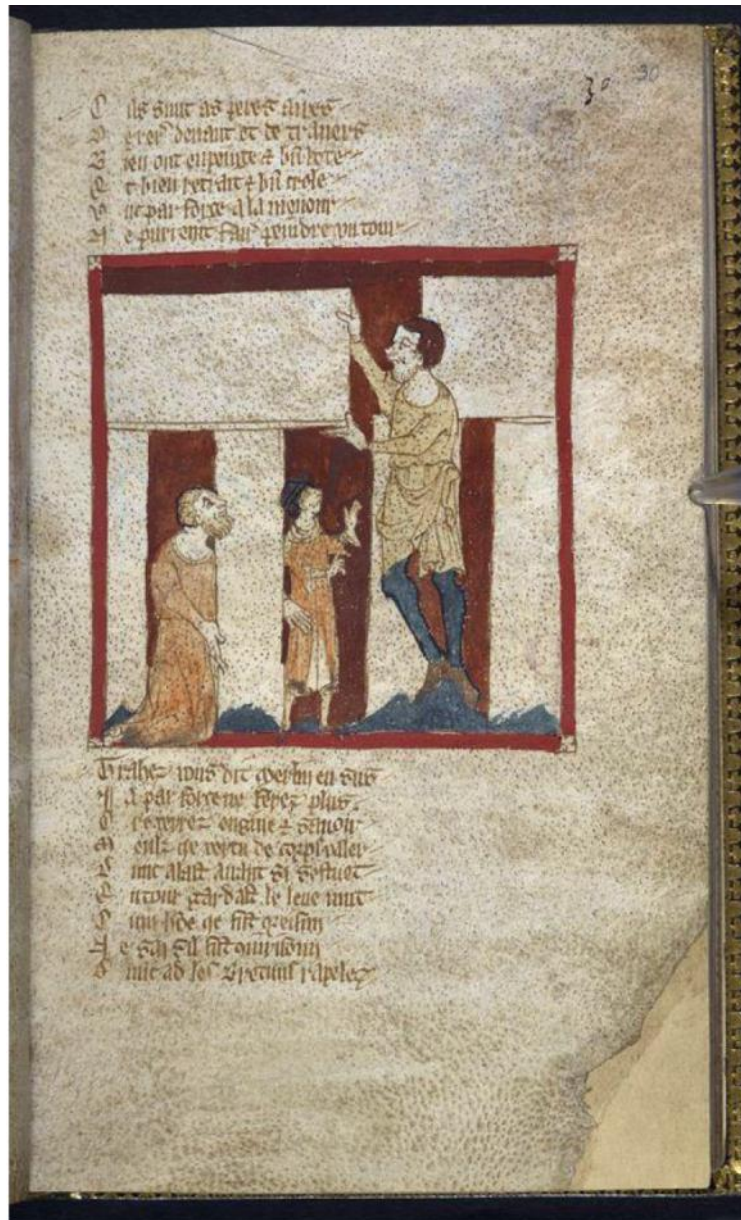 30 30
C ils sunt as peres
D erer denant et de travers
B ien ont enpeinte & bn bote
E t bien retrait & bn crole
U nc par force a la menour
N e purrent fair prendre un tour
Trahez vous dit Merlin en sus
J a par force ne ferez plus
O re verrez engine & savoir
M eulz qe vertu de corps valer
D unc alast avant si sestuet
E ntour gardast le leve muit
C um hōe qe fist oreisun
N e sai sil fist
D unc ad les Bretuns rapelez